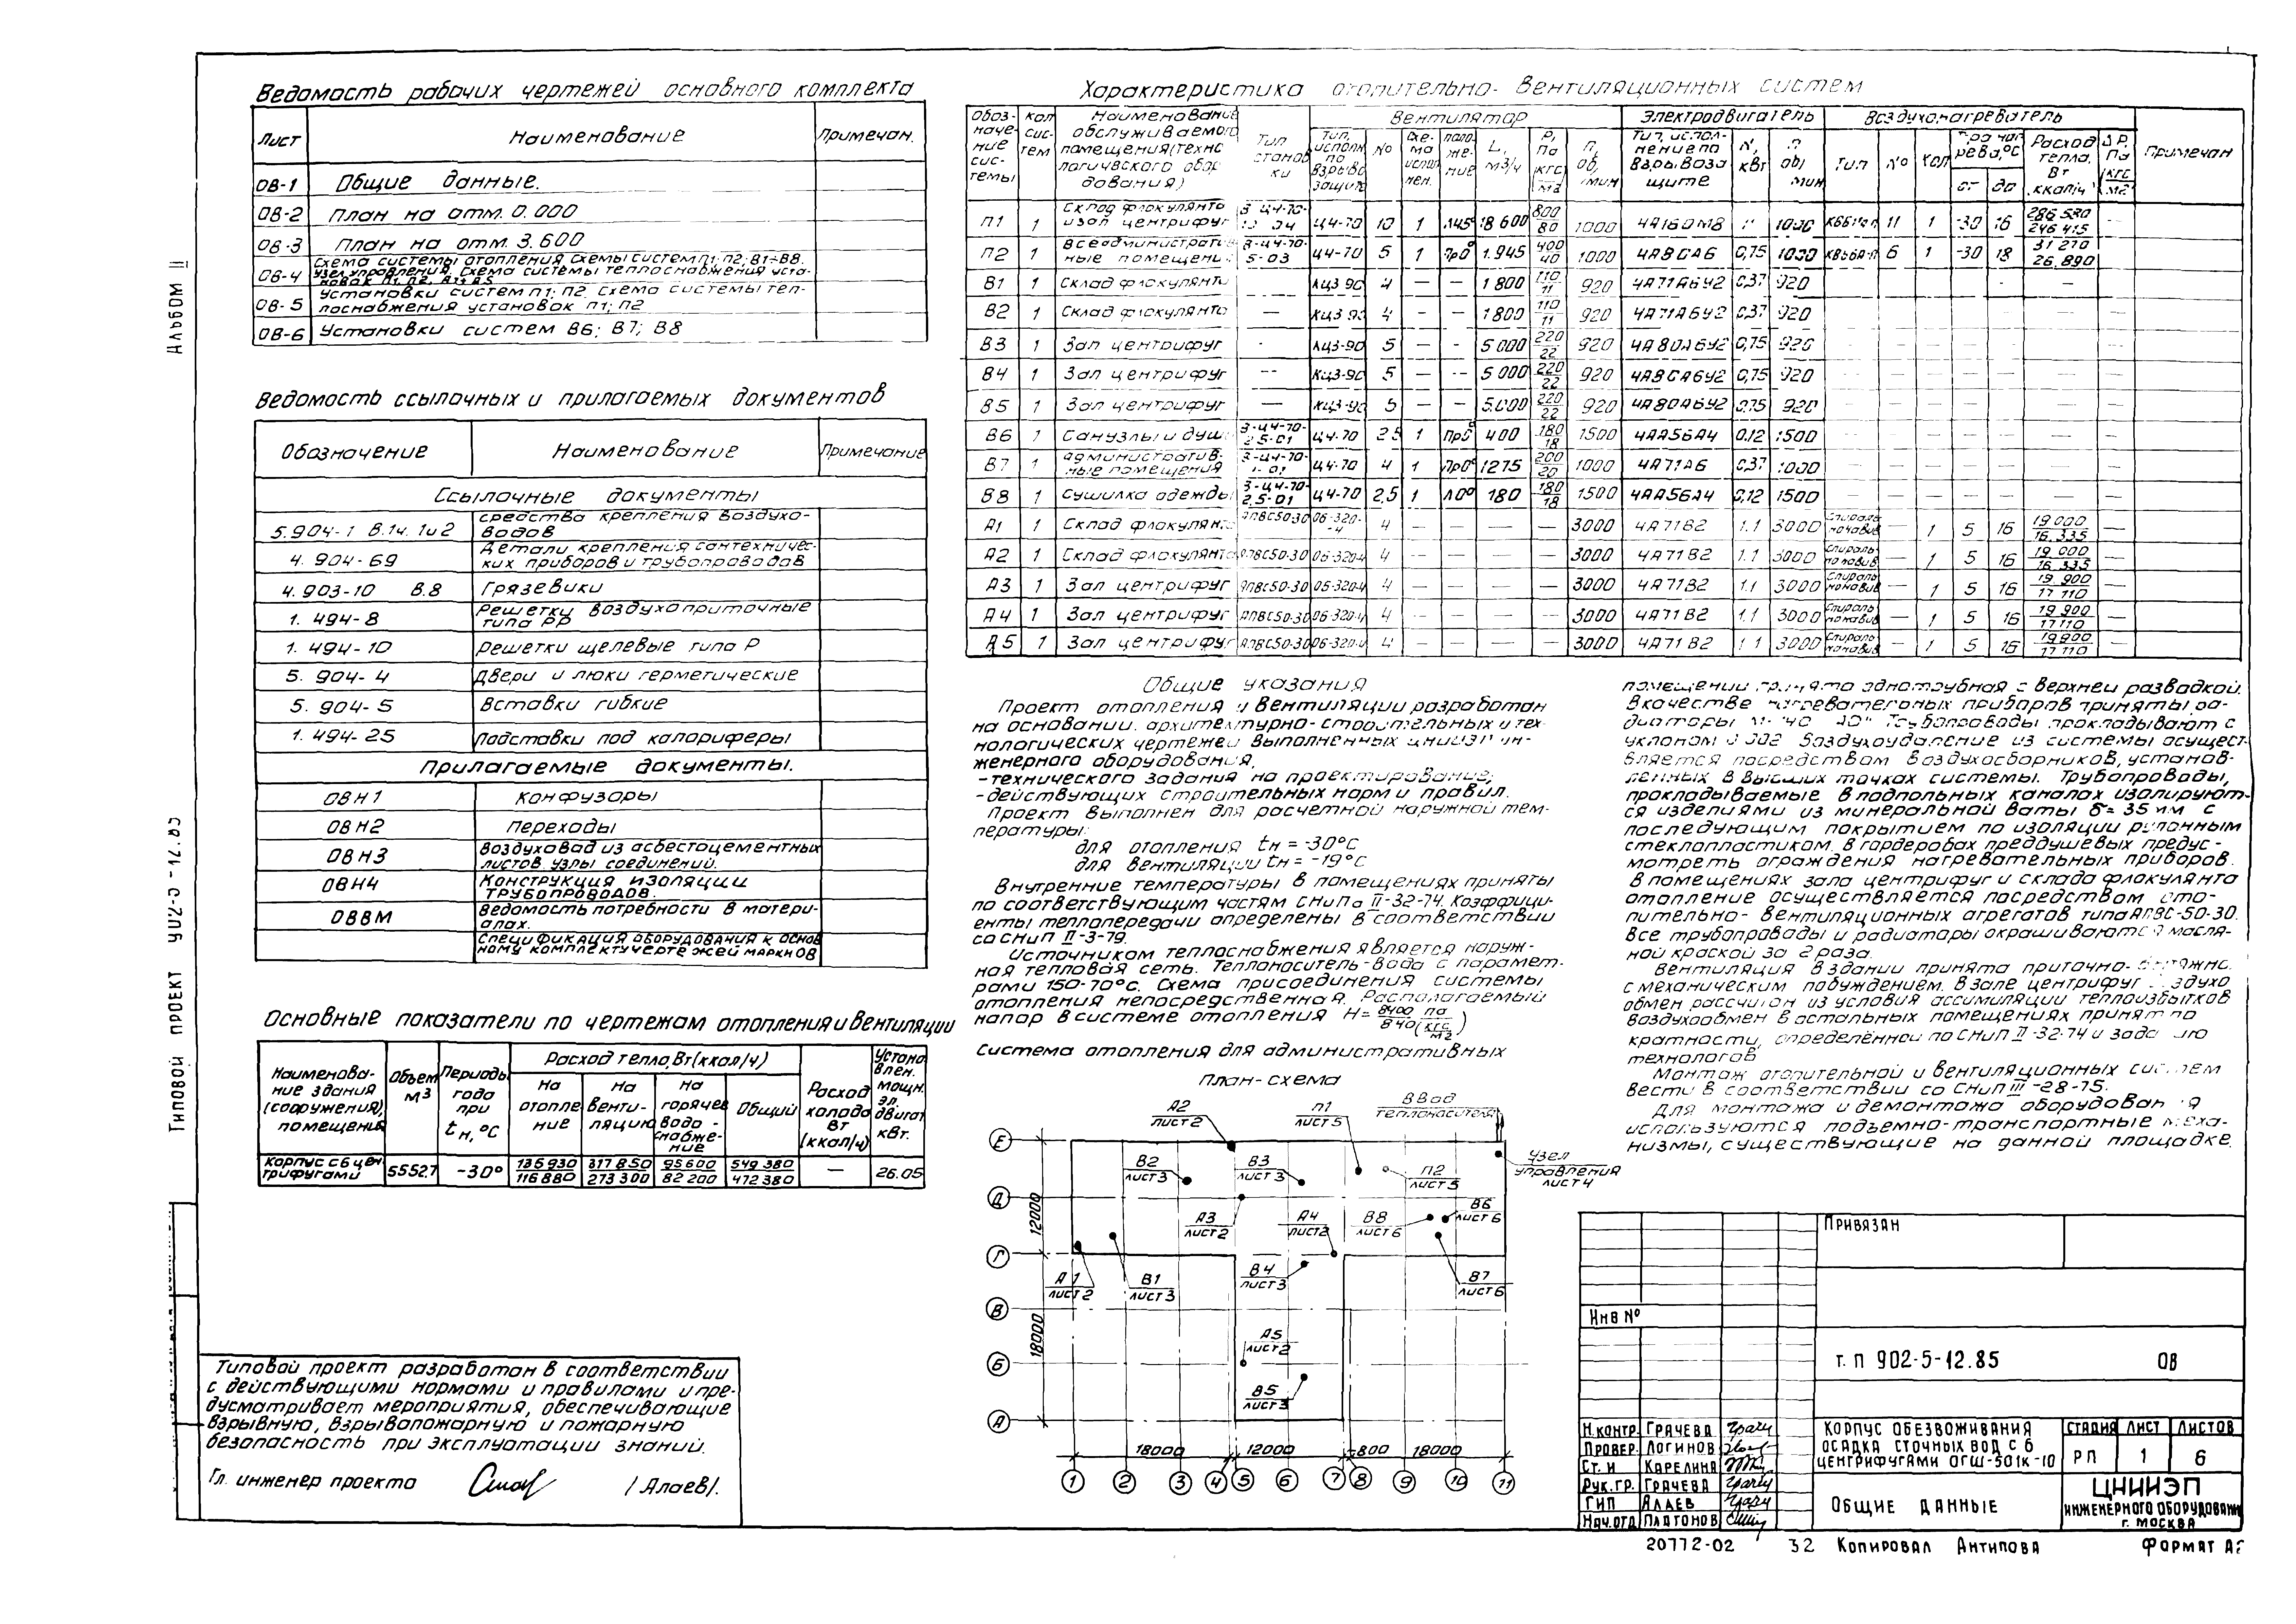 Альбом II
Типовой проект 902-5-12.85
Ведомость рабочих чертежей основного комплекта
Лист Наименование Примечан.
ОВ-1 Общие данные.
ОВ-2 План на отм. 0.000
ОВ-3 План на отм. 3.600
ОВ-4 Схема системы отопления. Схемы систем П1; П2; В1÷В8.
Узел управления. Схема системы теплоснабжения уста-
новок П1, П2, А1÷А5
ОВ-5 Установки систем П1; П2. Схема системы теп-
лоснабжения установок П1; П2
ОВ-6 Установки систем В6; В7; В8
Ведомость ссылочных и прилагаемых документов
Обозначение Наименование Примечание
Ссылочные документы
5.904-1 В.1ч. 1и2 Средства крепления воздухо-
водов
4.904-69 Детали крепления сантехничес-
ких приборов и трубопроводов
4.903-10 В.8 Грязевики
1.494-8 Решетки воздухоприточные
типа РР
1.494-10 Решетки щелевые типа Р
5.904-4 Двери и люки герметические
5.904-5 Вставки гибкие
1.494-25 Подставки под калориферы
Прилагаемые документы.
ОВН1 Конфузоры
ОВН2 Переходы
ОВН3 Воздуховод из асбестоцементных
листов. Узлы соединений.
ОВН4 Конструкция изоляции
трубопроводов.
ОВВМ Ведомость потребности в матери-
алах.
Спецификация оборудования к основ
ному комплекту чертежей марки ОВ
Основные показатели по чертежам отопления и вентиляции
Наименова-
ние здания
(сооружения),
помещения
Объем
м3
Периоды
года
при
tн,°С
Расход тепла, Вт(ккал/ч)
На
отопле
ние
На
венти-
ляцию
На
горячее
водо-
снабже-
ние
Общий
Расход
холода
Вт
(ккал/ч)
Устано
влен.
мощн.
эл.
двигат
кВт.
Корпус с 6 цен
трифугами 5552,7 -30° 135930/116880 317850/273300 95600/82200 549380/472380 — 26.05
Типовой проект разработан в соответствии
с действующими нормами и правилами и пре-
дусматривает мероприятия, обеспечивающие
взрывную, взрывопожарную и пожарную
безопасность при эксплуатации зданий.
Гл. инженер проекта (Алаев).
Характеристика отопительно-вентиляционных систем
Обоз-
наче-
ние
сис-
темы
Кол
сис-
тем
Наименование
обслуживаемого
помещения(техно
логического обор
дования)
Тип
установ
ки
Вентилятор
Тип,
исполн
по
взрыво
защите
№
Схе-
ма
испол
нен.
Поло-
же-
ние
L,
м3/ч
Р,
Па
(кгс/м2)
п,
об/мин
Электродвигатель
Тип, испол-
нение по
взрывоза
щите
N,
кВт
п
об/мин
Воздухонагреватель
Тип № Кол
от до
Расход
тепла,
Вт
(ккал/ч)
ΔР,
Па
(кгс/м2)
Примечан
П1 1 Склад флокулянта
и зал центрифуг Ц4-70 10 1 Л45° 18600 800/80 1000 4А160М8 11 1000 11 1 -30 16 286530/246415 —
П2 1 Все административ
ные помещения Э-Ц4-70-
5-03 Ц4-70 5 1 Пр0 1.945 400/40 1000 4А80А6 0,75 1000 6 1 -30 18 31270/26.890 —
В1 1 Склад флокулянта КЦ3-90 4 — — 1800 110/11 920 4А71А6У2 0,37 920
В2 1 Склад флокулянта — КЦ3-90 4 — — 1800 110/11 920 4А71А6У2 0,37 920 — — — — — — —
В3 1 Зал центрифуг КЦ3-90 5 — — 5000 220/22 920 4А80А6У2 0,75 920 — — — — — — —
В4 1 Зал центрифуг — КЦ3-90 5 — — 5000 220/22 920 4А80А6У2 0,75 920 — — — — — — —
В5 1 Зал центрифуг — КЦ3-90 5 — — 5.000 220/22 920 4А80А6У2 0,75 920 — — — — — — —
В6 1 Санузлы и душ. Э-Ц4-70-
2.5-01 Ц4-70 2.5 1 Пр0° 400 180/18 1500 4АА56А4 0.12 1500 — — — — — — —
В7 1 Административ-
ные помещения Ц4-70 4 1 Пр0° 1275 200/20 1000 4А71А6 0,37 1000 — — — — — — —
В8 1 Сушилка одежды Э-Ц4-70-
2,5-01 Ц4-70 2,5 1 Л0° 180 180/18 1500 4АА56А4 0,12 1500 — — — — — — —
А1 1 Склад флокулянта АПВС50-30 06-320-
-4 4 — — — — 3000 4А71В2 1.1 3000 Спираль
нонавив — 1 5 16 19000/16.335 —
А2 1 Склад флокулянта АПВС50-30 06-320-4 4 — — — — 3000 4А71В2 1.1 3000 Спираль
нонавив — 1 5 16 19000/16.335 —
А3 1 Зал центрифуг АПВС50-30 06-320-4 4 — — — — 3000 4А71В2 1.1 3000 Спираль
нонавив — 1 5 16 19.900/17110 —
А4 1 Зал центрифуг АПВС50-30 06-320-4 4 — — — — 3000 4А71В2 1.1 3000 Спираль
нонавив — 1 5 16 19900/17110 —
А5 1 Зал центрифуг АПВС50-30 06-320-4 4 — — — — 3000 4А71В2 1.1 3000 Спираль
нонавив — 1 5 16 19900/17110 —
Общие указания
Проект отопления и вентиляции разработан
на основании: архитектурно-строительных и тех-
нологических чертежей выполненных ЦНИИЭП ин-
женерного оборудования,
-технического задания на проектирование;
-действующих строительных норм и правил.
Проект выполнен для расчетной наружной тем-
пературы:
для отопления tн = -30°С
для вентиляции tн = -19°С
Внутренние температуры в помещениях приняты
по соответствующим частям СНиПа II-32-74. Коэффици-
енты теплопередачи определены в соответствии
со СНиП II-3-79.
Источником теплоснабжения является наруж-
ная тепловая сеть. Теплоноситель-вода с парамет-
рами 150-70°С. Схема присоединения системы
отопления непосредственная. Располагаемый
напор в системе отопления Н= 8400/840 па/(кгс/м2)
Система отопления для административных
помещений принята однотрубная с верхней разводкой.
В качестве нагревательных приборов приняты ра-
диаторы М-140 "АО". Трубопроводы прокладывают с
уклоном 0.002 Воздухоудаление из системы осущест
вляется посредством воздухосборников, установ-
ленных в высших точках системы. Трубопроводы,
прокладываемые в подпольных каналах изолируют-
ся изделиями из минеральной ваты δ=35 мм с
последующим покрытием по изоляции рулонным
стеклопластиком. В гардеробах преддушевых предус-
мотреть ограждения нагревательных приборов.
В помещениях зала центрифуг и склада флокулянта
отопление осуществляется посредством ото-
пительно-вентиляционных агрегатов типа АПВС-50-30.
Все трубопроводы и радиаторы окрашиваются масля-
ной краской за 2 раза.
Вентиляция в здании принята приточно-вытяжная
с механическим побуждением. В зале центрифуг воздухо
обмен рассчитан из условия ассимиляции теплоизбытков
воздухообмен в остальных помещениях принят по
кратности, определённой по СНиП II-32-74 и заданию
технологов.
Монтаж отопительной и вентиляционных систем
вести в соответствии со СНиП III-28-75.
Для монтажа и демонтажа оборудования
используются подъемно-транспортные меха-
низмы, существующие на данной площадке.
План-схема
А2
лист2
П1
лист5
Ввод
теплоносителя
В2
лист3
В3
лист3
П2
лист5
Узел
управления
лист4
А3
лист2
А4
лист2
В8
лист6
В6
лист6
А1
лист2
В1
лист3
В4
лист3
В7
лист6
А5
лист2
В5
лист3
Е
Д
Г
В
Б
А
12000
18000
18000 12000 800 18000
1 2 3 4 5 7 8 9 10 11
Привязан
Инв №
т.п 902-5-12.85 ОВ
Н.контр. Грачева
Провер. Логинов
Ст. и Карелина
Рук.гр. Грачева
ГИП Алаев
Нач.отд Платонов
Корпус обезвоживания
осадка сточных вод с 6
центрифугами ОГШ-501К-10
Стадия Лист Листов
РП 1 6
Общие данные
ЦНИИЭП
инженерного оборудования
г. Москва
20772-02 32 Копировал Антипова Формат А2